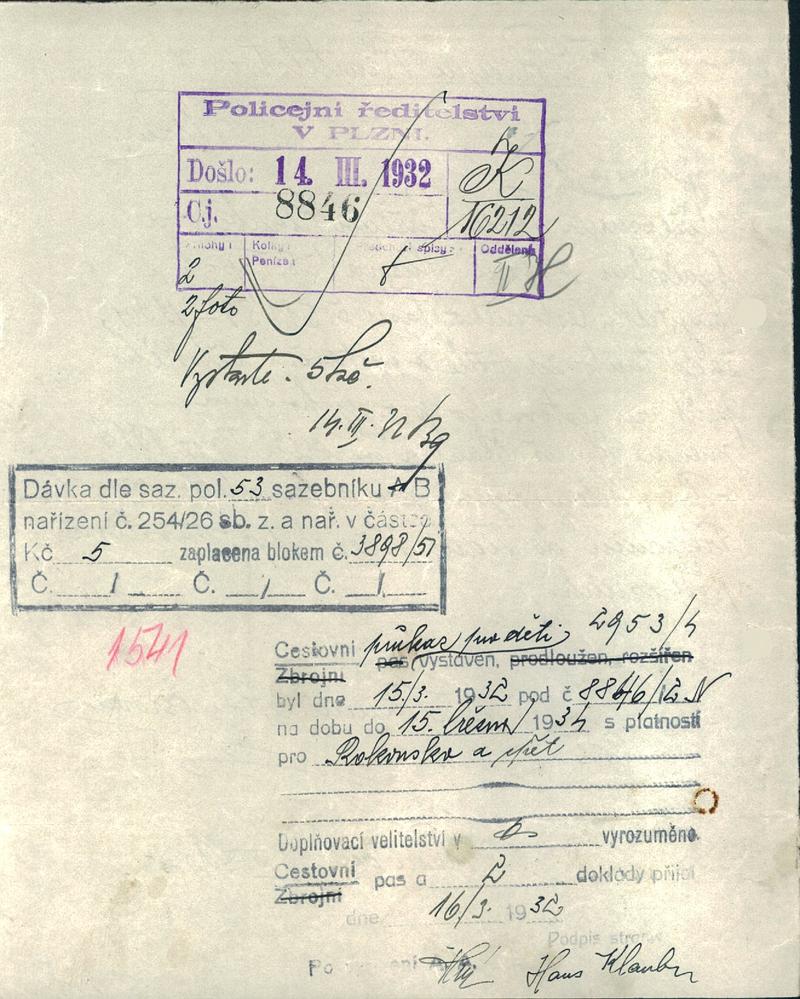 Policejní ředitelství
V PLZNI.
Došlo: 14. III. 1932
Č.j. 8846
K
16212
Přílohy Kolky Předchozí spisy: Oddělení
Peníze
2
2 foto
5 Kč.
14. III.
Dávka dle saz. pol. 53 sazebníku A B
nařízení č. 254/26 sb. z. a nař. v částce
Kč 5 zaplacena blokem č. 3898/51
Č. / Č. / Č. /
1541
2953/4
Cestovní průkaz pro děti
Zbrojní pas vystaven, prodloužen, rozšířen
byl dne 15/3. 1932 pod č 8846/
na dobu do 15. března 1934 s platností
pro Rakousko a zpět
Doplňovací velitelství v vyrozuměno.
Cestovní pas a doklady přijal
Zbrojní
dne 16/3. 1932
Podpis strany
Hans Klauber